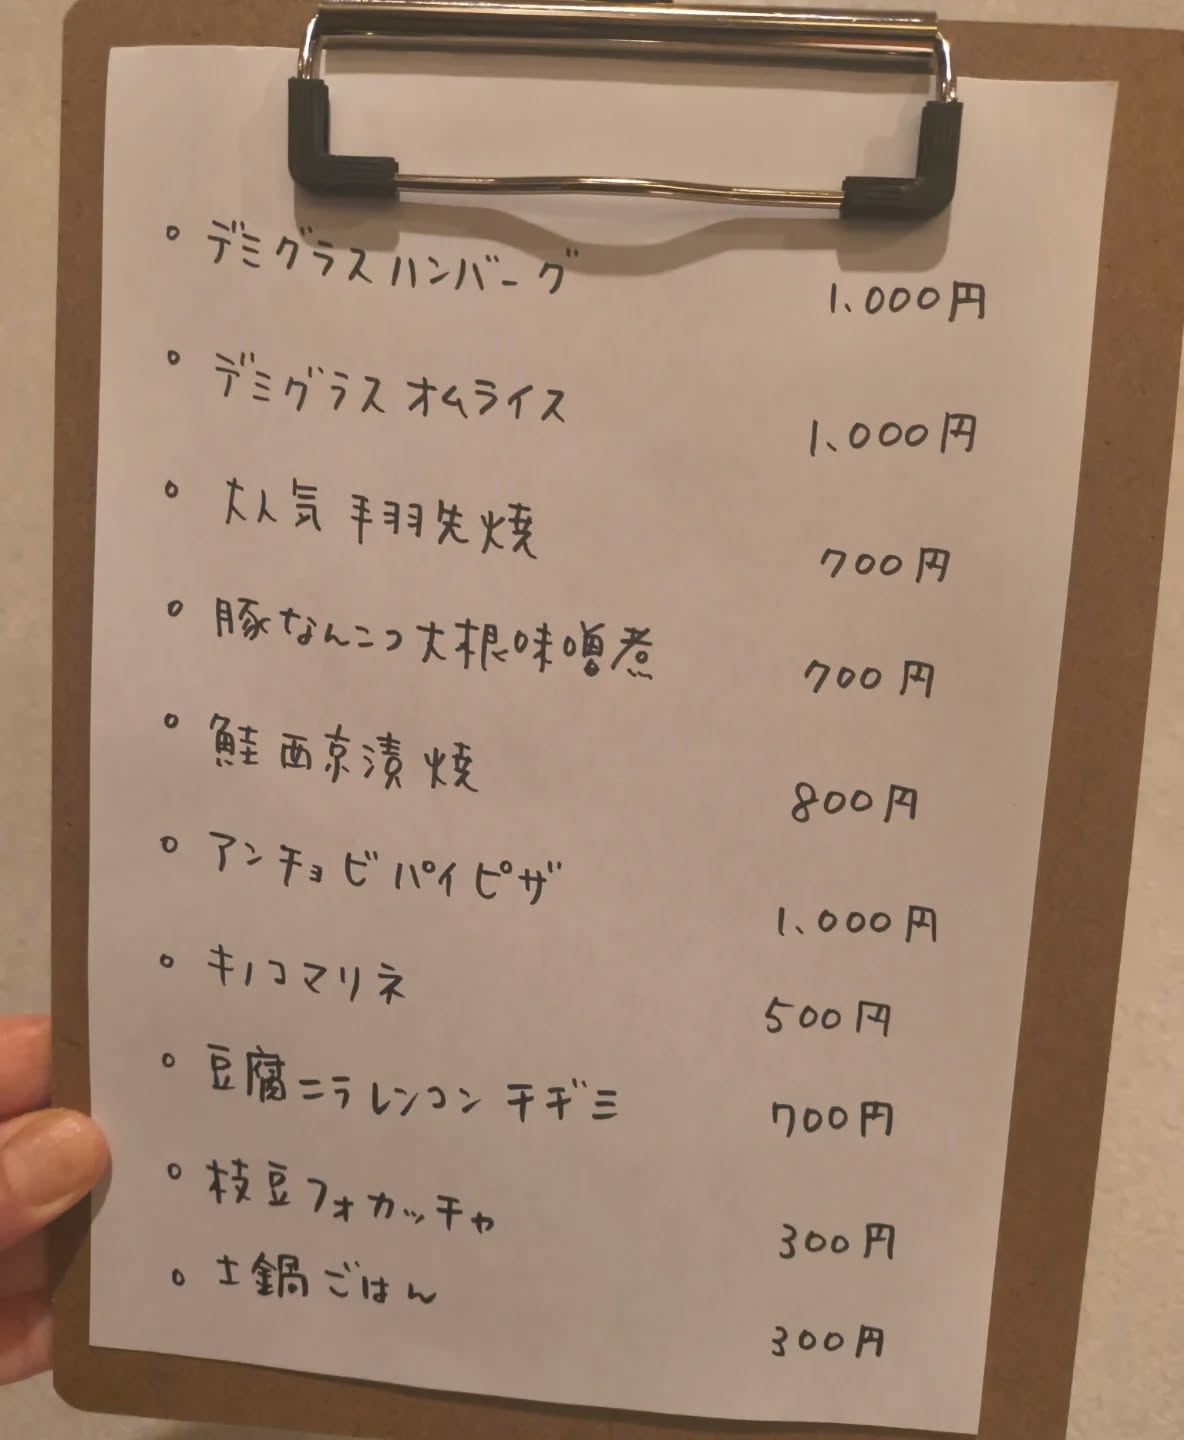 。デミグラスハンバーグ 1、000円
。デミグラスオムライス 1、000円
。大人気 手羽先焼 700円
。豚なんこつ大根味噌煮 700円
。鮭西京漬焼 800円
。アンチョビパイピザ 1、000円
。キノコマリネ 500円
。豆腐ニラレンコンチヂミ 700円
。枝豆フォカッチャ 300円
。土鍋ごはん 300円